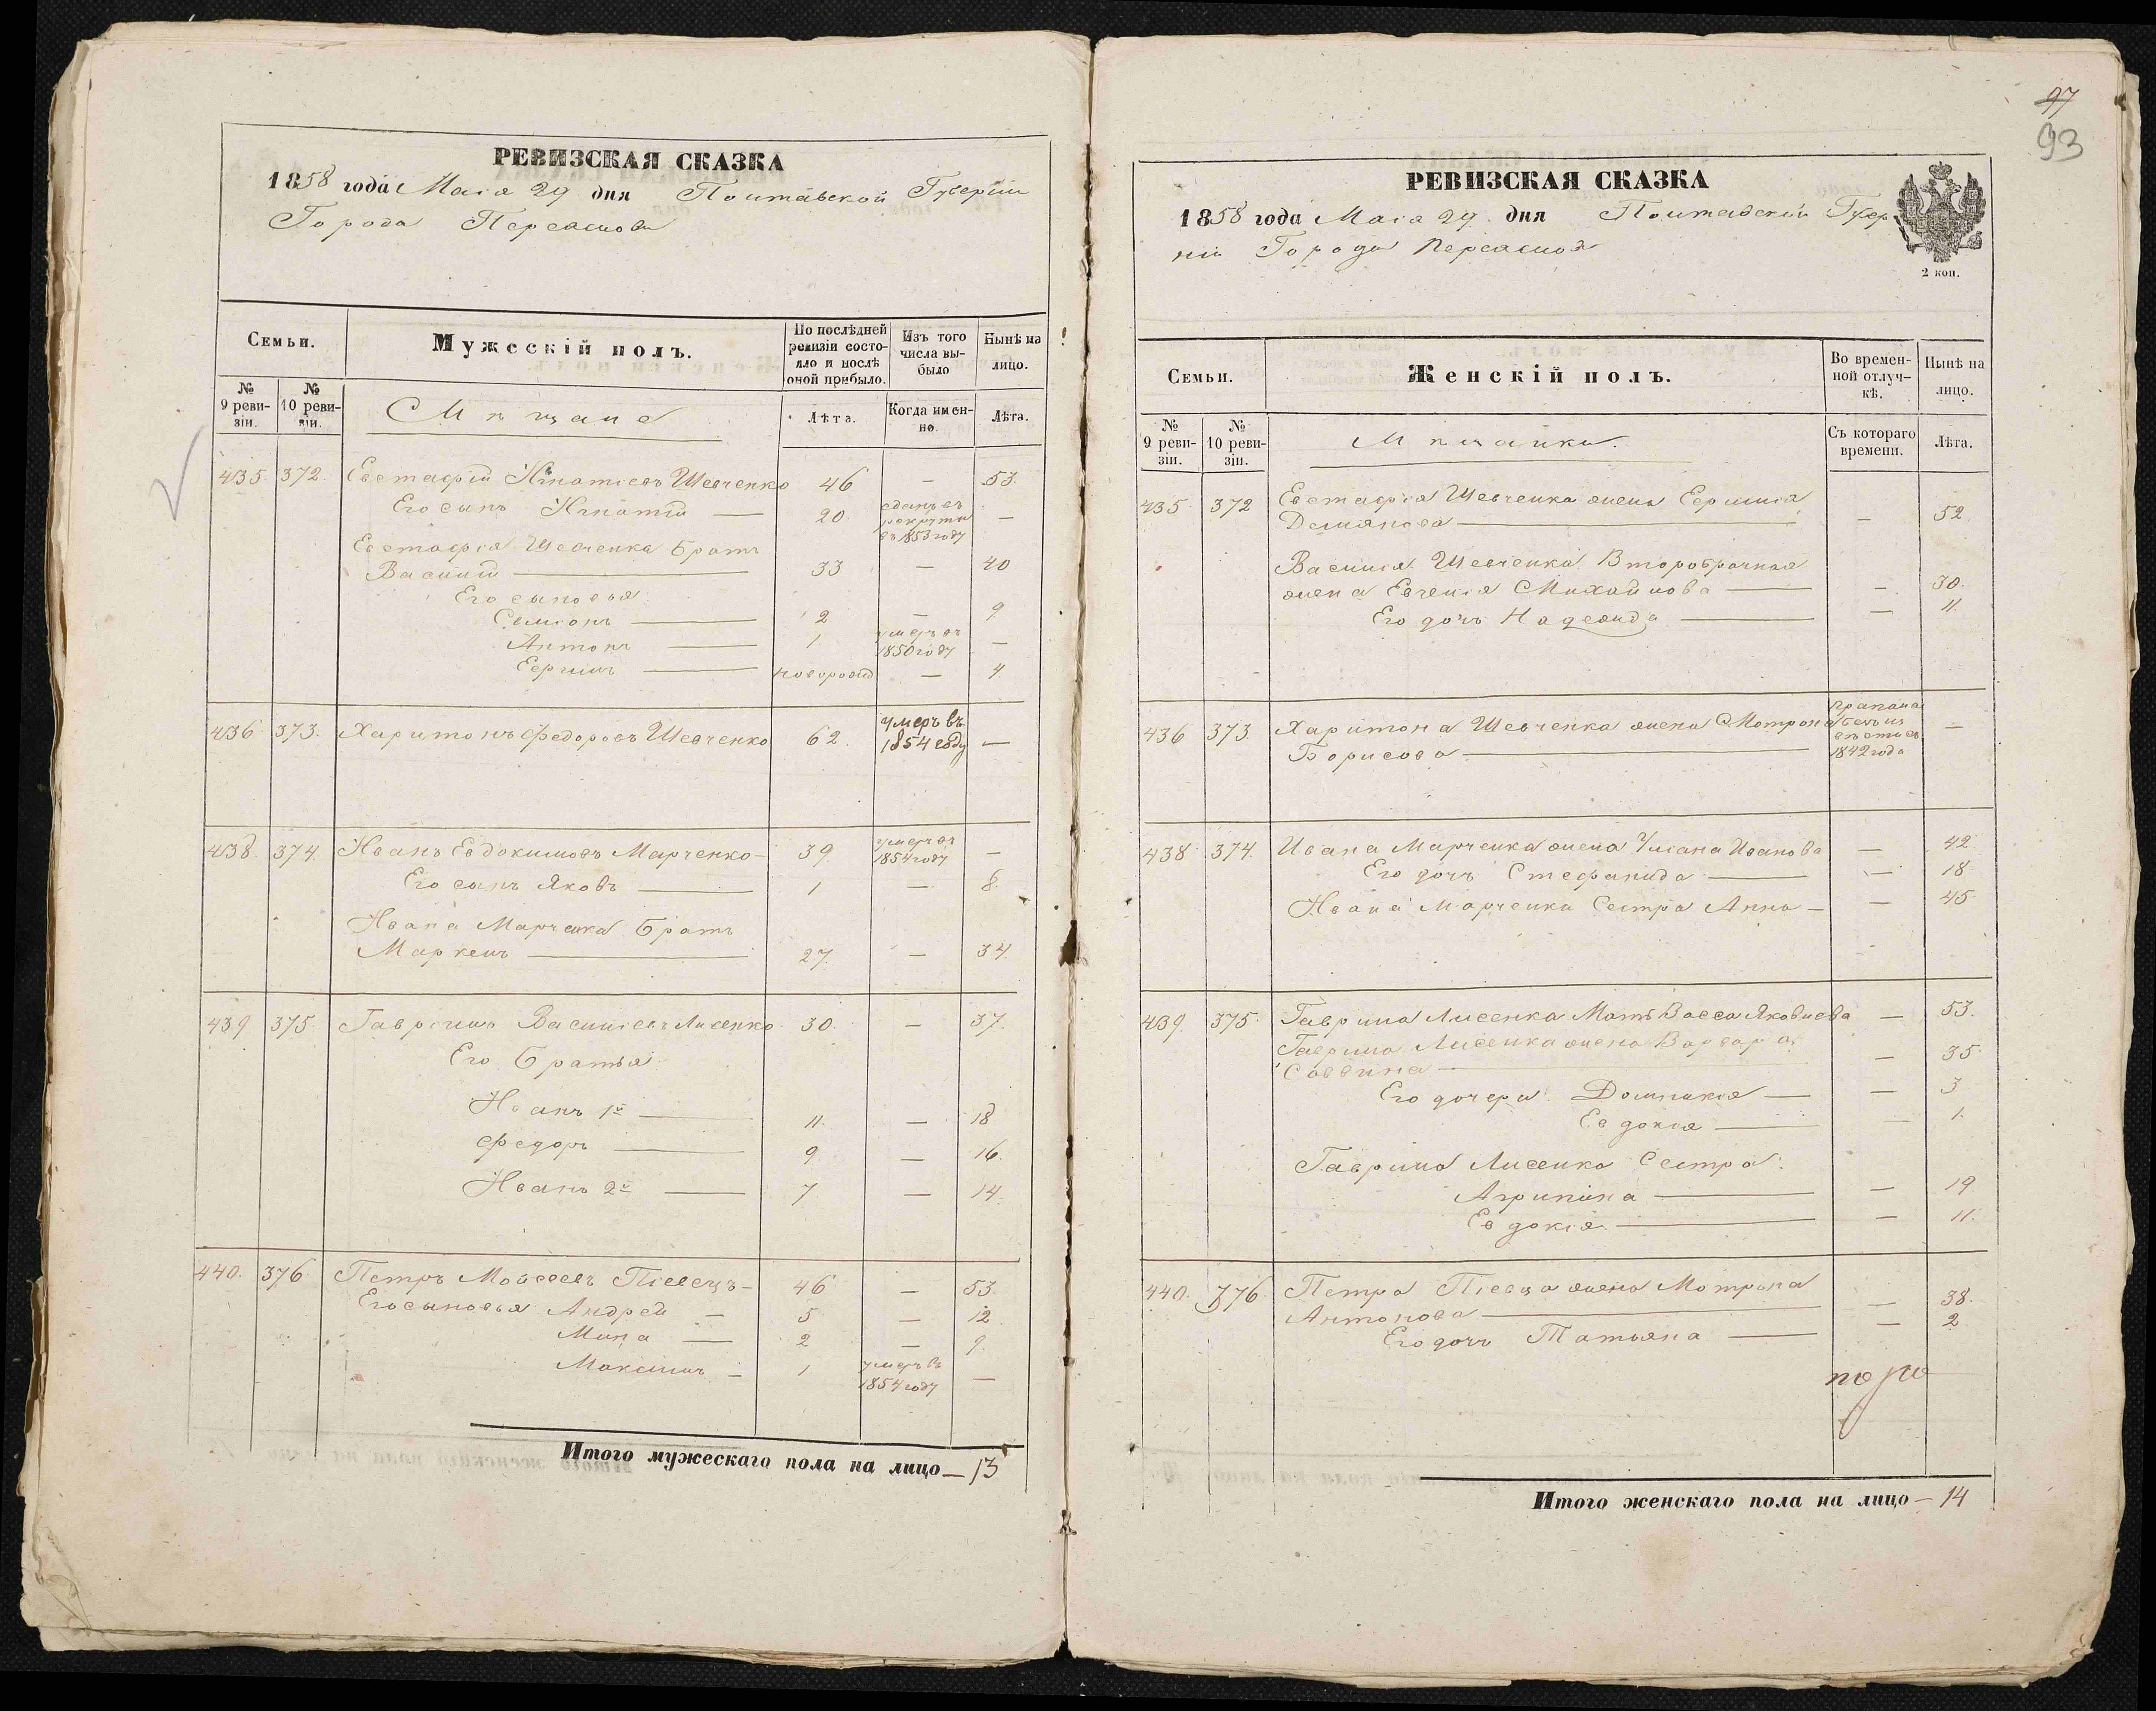 97
93
РЕВИЗСКАЯ СКАЗКА
1858 года Маія 29 дня Полтавской Губерніи
Города Переяслова
Семьи.
Мужескій полъ.
По послѣдней ревизіи состояло и послѣ оной прибыло.
Изъ того числа выбыло
Нынѣ на лицо.
№ 9 ревизіи.
№ 10 ревизіи.
Мѣщане
Лѣта.
Когда именно.
Лѣта.
435 372 Евстафій Игнатіевъ Шевченко 46 — 53.
Его сынъ Игнатій — 20 сданъ въ рекруты въ 1853 году —
Евстафія Шевченка Братъ
Василій — 33 — 40
Его сыновья
Семіонъ — 2 — 9
Антонъ — 1 умеръ въ 1850 году —
Ефимъ — новорожд — 4
436 373. Харитонъ Федоровъ Шевченко 62. умеръ въ 1854 году —
438. 374. Иванъ Евдокимовъ Марченко — 39 умеръ въ 1854 году —
Его сынъ Яковъ — 1 — 8
Ивана Марченка Братъ
Маркелъ — 27. — 34.
439 375. Гавріилъ Василіевъ Лисенко 30. — 37.
Его Братья
Иванъ 1й — 11. — 18
Федоръ — 9. — 16.
Иванъ 2й — 7 — 14.
440. 376. Петръ Моисеевъ Півецъ — 46 — 53.
Его сыновья Андрей — 5 — 12
Мина — 2 — 9.
Максимъ — 1 умеръ въ 1854 году —
Итого мужескаго пола на лицо — 13
РЕВИЗСКАЯ СКАЗКА
1858 года Маія 29. дня Полтавской Губер
ніи Города Переяслова
2 коп.
Семьи.
Женскій полъ.
Во временной отлучкѣ.
Нынѣ на лицо.
№ 9 ревизіи.
№ 10 ревизіи.
Мѣщанки.
Съ котораго времени.
Лѣта.
435 372 Евстафія Шевченка жена
Демянова — — 52.
Василія Шевченка Второбрачная
жена Евгенія Михайлова — — 30.
Его дочь Надежда — — 11.
436 373. Харитона Шевченка жена Мотрона
Борисова — 1842 года —
438 374. Ивана Марченка жена Уліана Иванова — 42.
Его дочь Стефанида — — 18
Ивана Марченка Сестра Анна — — 45
439. 375. Гаврила Лисенка Мать Васса Яковлева — 53.
Гаврила Лисенка жена Варвара
Саввина — — 35.
Его дочери Домникія — — 3
Евдокія — — 1.
Гаврила Лисенка Сестра
Агрипина — — 19
Евдокія — — 11.
440. 376. Петра Півца жена Мотрона
Антонова — — 38.
Его дочь Татьяна — — 2.
Итого женскаго пола на лицо — 14